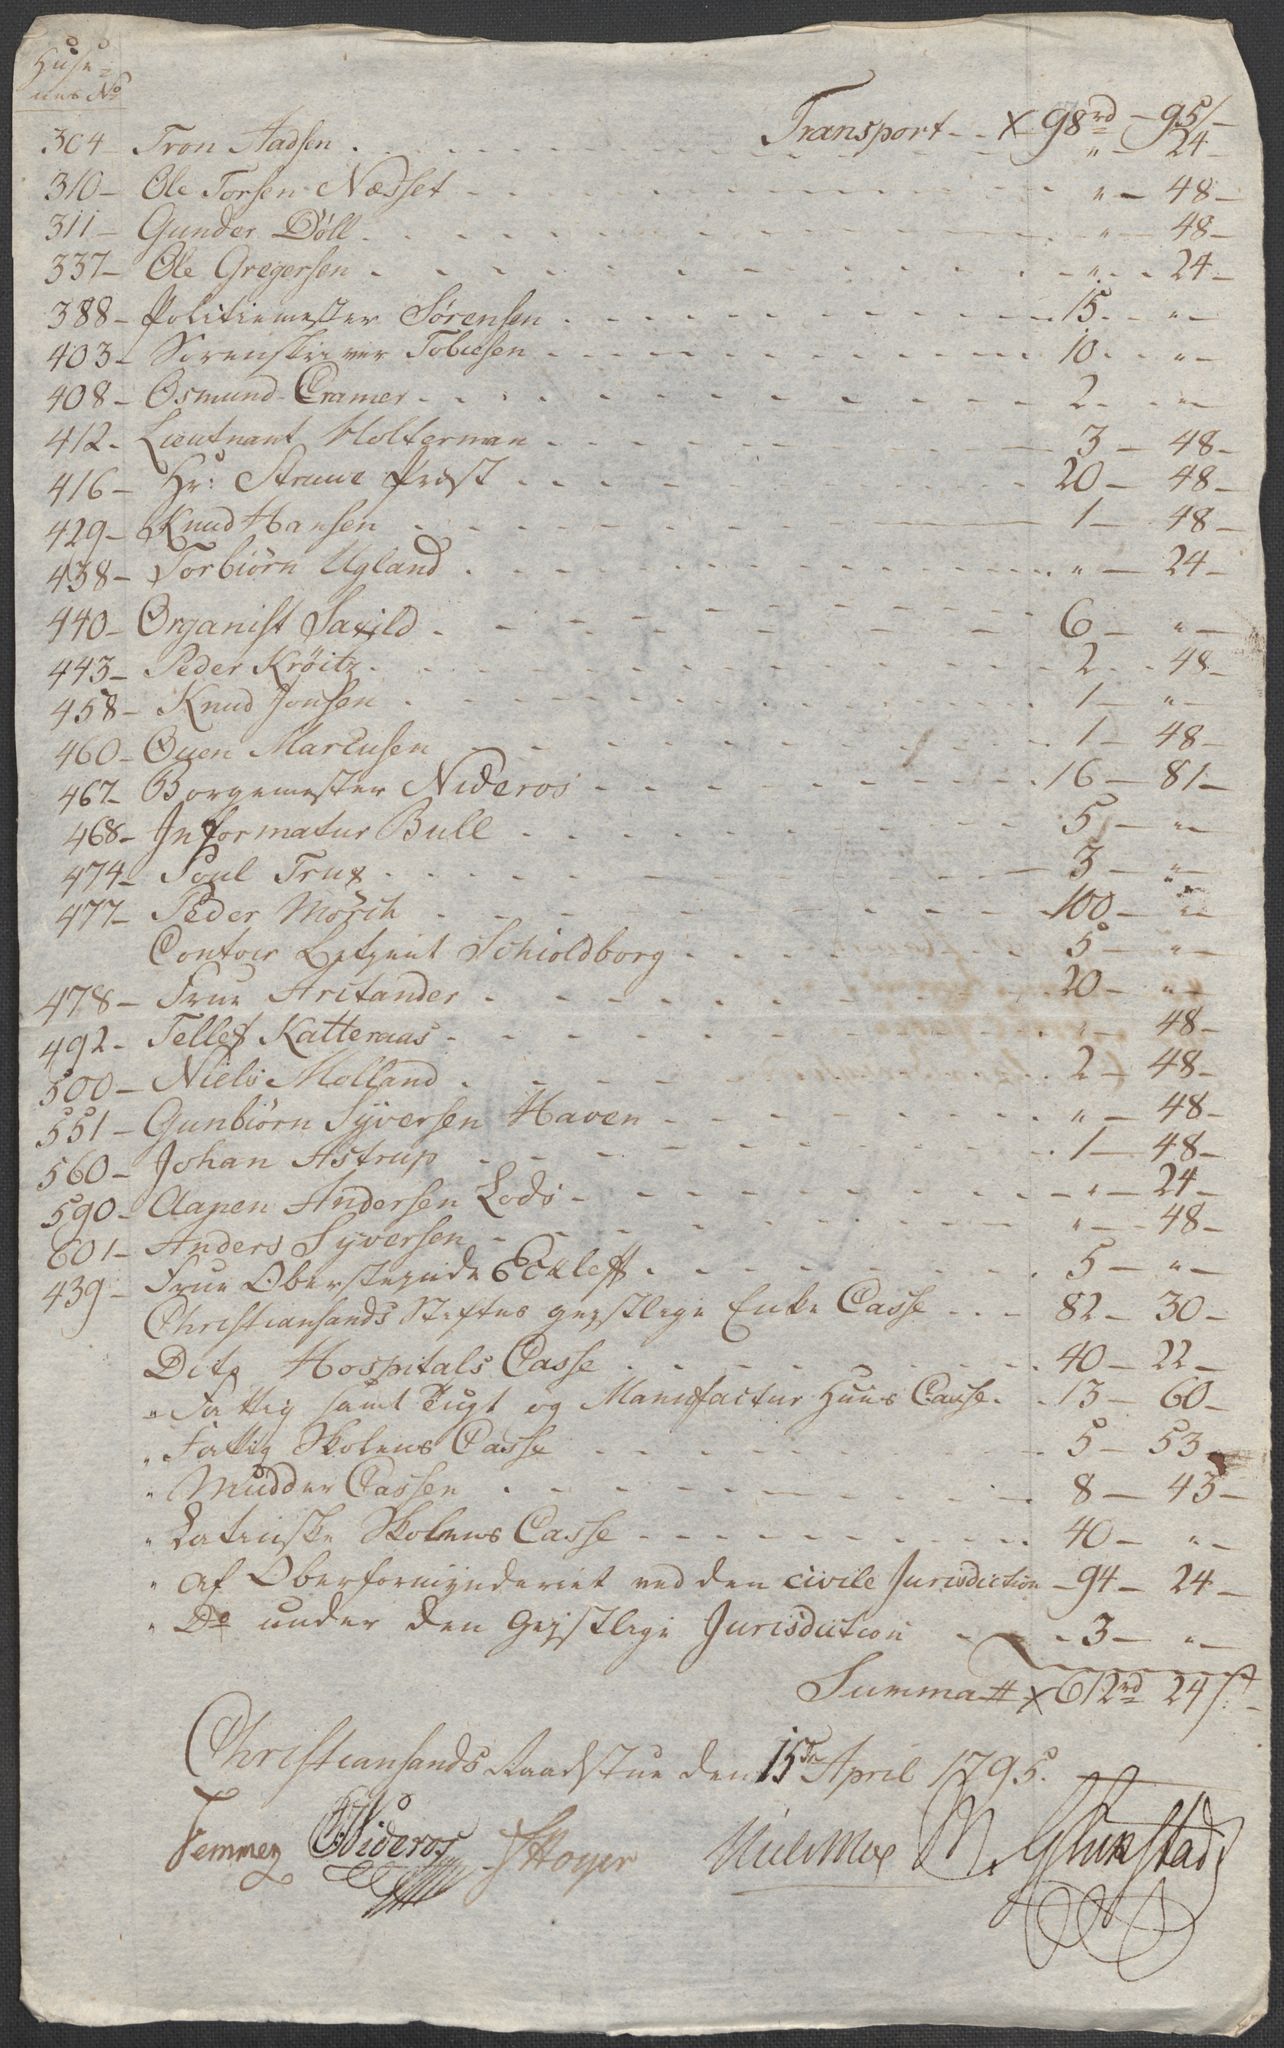 Huse-
nes No
Transport - - X 98rd - 95 s -
304 - Tron Aadsen - " - 24 -
310 - Ole Torsen Næsset - " - 48 -
311 - Gunder Döll - " - 48 -
337 - Ole Gregersen - " - 24 -
388 - Politiemester Sørensen - 15 - " -
403 - Sorenskriver Tobiesen - 10 - " -
408 - Osmund Cramer - 2 - " -
412 - Lieutnant Holterman - 3 - 48 -
416 - Hr: Struwe Præst - 20 - 48 -
429 - Knud Hansen - 1 - 48 -
438 - Torbiørn Ugland - " - 24 -
440 - Organist Saxild - 6 - " -
443 - Peder Krøitz - 2 - 48 -
458 - Knud Jonsen - 1 - " -
460 - Ouen Marcusen - 1 - 48 -
467 - Borgemester Nideros - 16 - 81 -
468 - Informatur Bull - 5 - " -
474 - Poul Trux - 3 - " -
477 - Peder Mörch - 100 - " -
Contoir Betient Schioldborg - 5 - " -
478 - Frue Arctander - 20 - " -
492 - Tellef Katteraas - " - 48 -
500 - Niels Molland - 2 - 48 -
551 - Gunbiørn Syversen Haven - " - 48 -
560 - Johan Astrup - 1 - 48 -
590 - Aanen Andersen Lods - " - 24 -
601 - Anders Syversen - " - 48 -
439 - Frue Oberstinde Eckleff - 5 - " -
Christiansands Stiftes geistlige Enke Casse - 82 - 30 -
Dito Hospitals Casse - 40 - 22 -
" Fattig samt Tugt og Manufactur Huus Casse - 13 - 60 -
" Fattig Skolens Casse - 5 - 53 -
" Mudder Cassen - 8 - 43 -
" Latinske Skolens Casse - 40 - " -
" Af Oberformynderiet ved den civile Jurisdiction - 94 - 24 -
" Do under den Geistlige Jurisdiction - 3 - " -
Summa X 612rd 24 s -
Christiansands Raadstue den 15de April 1795.
Femmez Nideros Høyer M. Glükstad